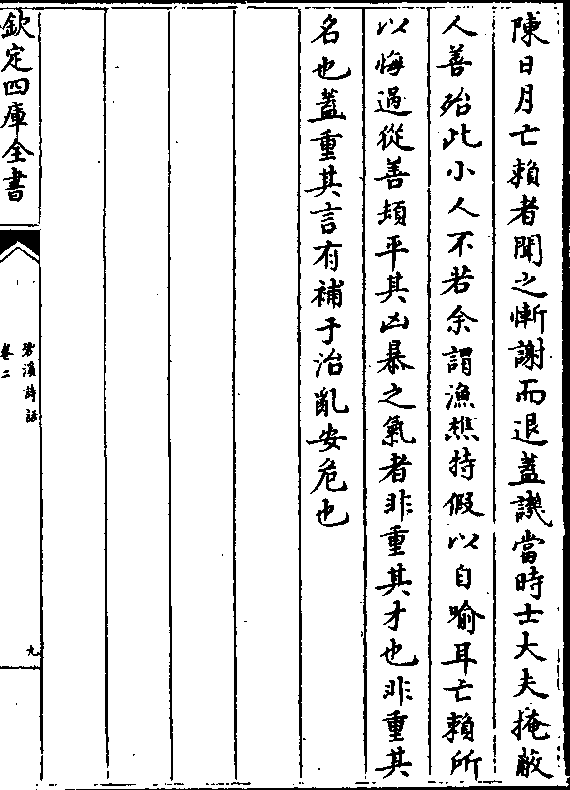 陳日月亡賴者聞之慚謝而退蓋譏當時士大夫掩蔽
人善殆此小人不若余謂漁樵特假以自喻耳亡賴所
以悔過從善頓平其凶暴之氣者非重其才也非重其
名也蓋重其言有補于治亂安危也
欽定四庫全書
䂬溪詩話
卷二
九